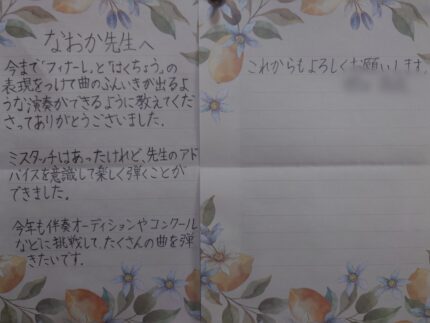 なおか先生へ
今まで「フィナーレ」と「はくちょう」の
表現をつけて曲のふんいきが出るよ
うな演奏ができるように教えてくだ
さってありがとうございました。
ミスタッチはあったけれど、先生のアド
バイスを意識して楽しく弾くことが
できました。
今年も伴奏オーディションやコンクール
などに挑戦して、たくさんの曲を弾
きたいです。
これからもよろしくお願いします。